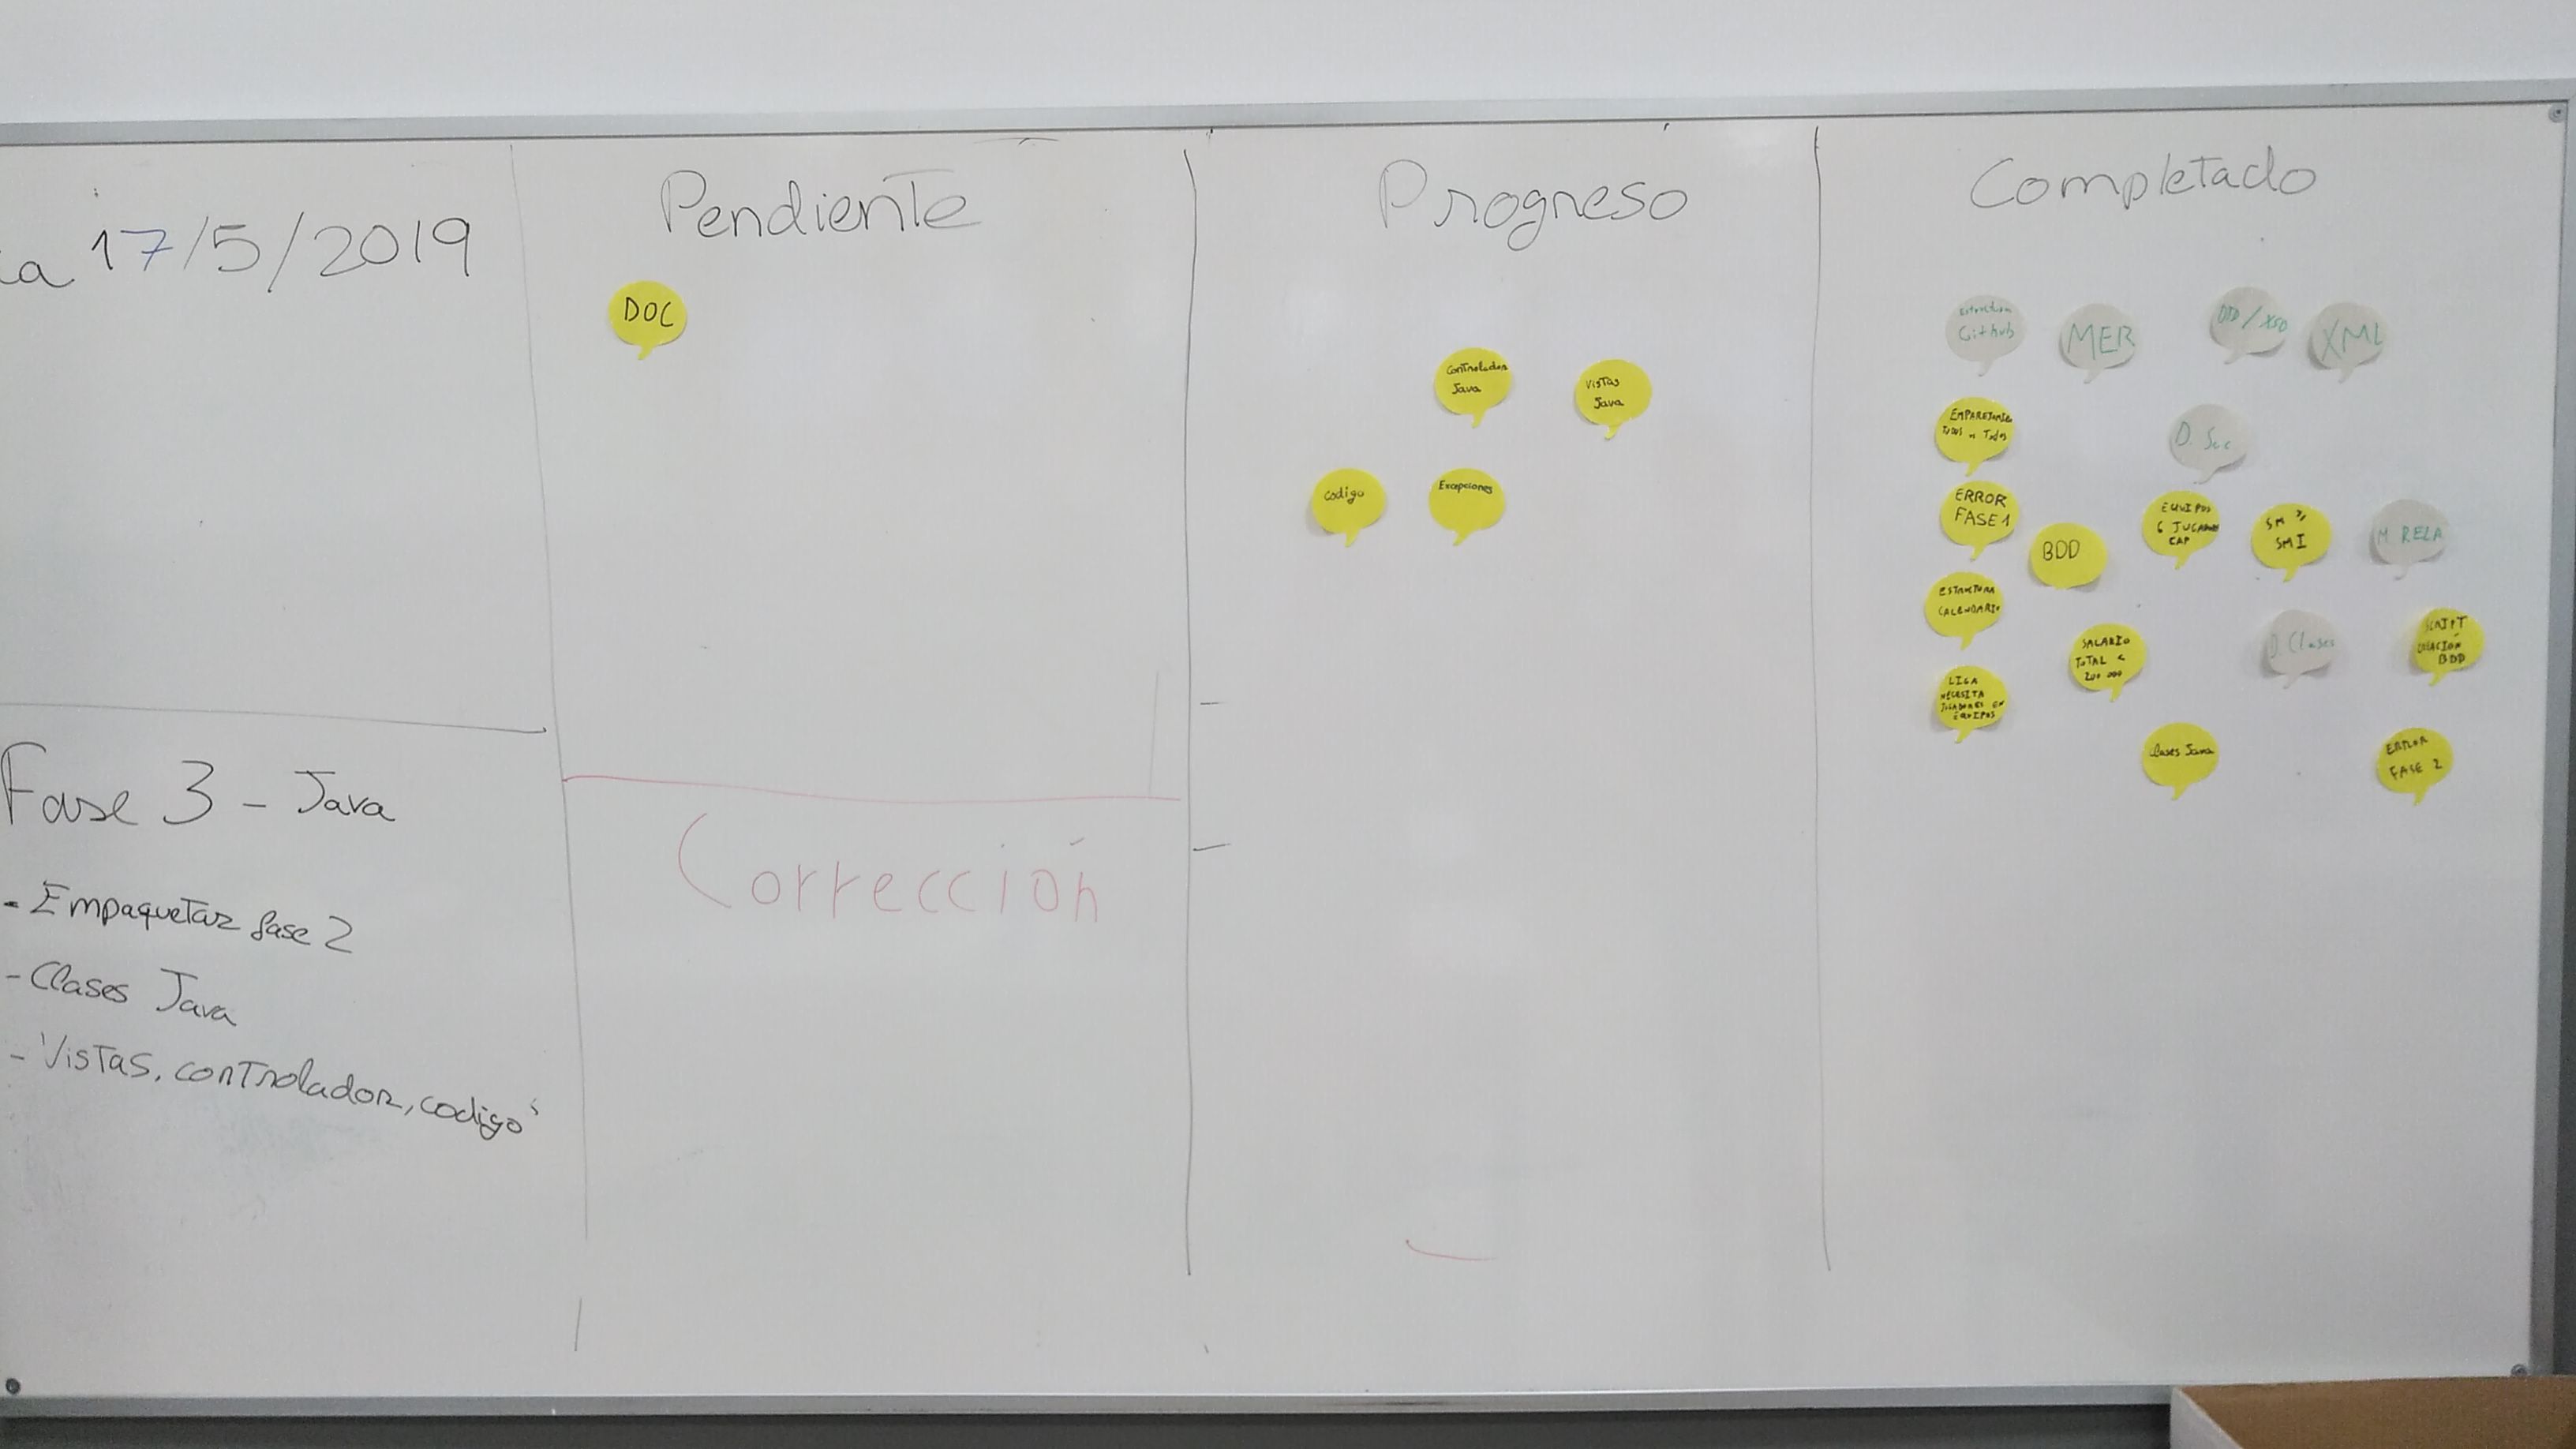 ia 17/5/2019
Fase 3 - Java
- Empaquetar fase 2
- Clases Java
- Vistas, controlador, codigo
Pendiente
DOC
Corrección
Progreso
Controlador
Java
Vistas
Java
Codigo
Excepciones
Completado
Github
MER
DTD / XSD
XML
TODOS a Todos
D. Sec
ERROR
FASE 1
BDD
EQUIPOS
6 JUGADORES
CAP
SMI
M RELA
ESTRUCTURA
CALENDARIO
SALARIO
TOTAL <
200 000
D. Clases
SCRIPT
CREACIÓN
BDD
LIGA
NECESITA
JUGADORES EN
EQUIPOS
Clases Java
ERROR
FASE 2